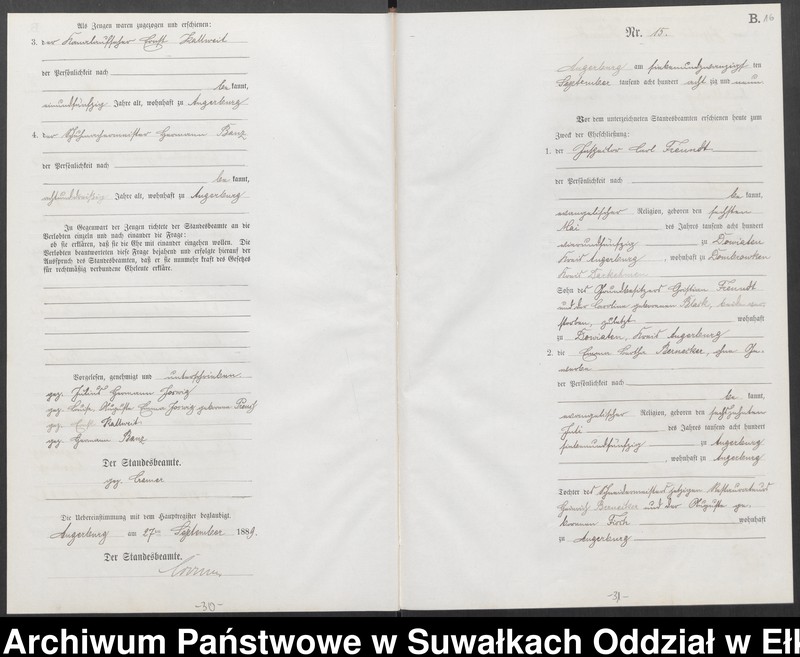 Als Zeugen waren zugezogen und erschienen:
3. der Kanzleiaufseher Ernst Kallweit
der Persönlichkeit nach
be kannt,
einundfünfzig Jahre alt, wohnhaft zu Angerburg
4. der Schuhmachermeister Hermann Banz
der Persönlichkeit nach
be kannt,
achtunddreißig Jahre alt, wohnhaft zu Angerburg
In Gegenwart der Zeugen richtete der Standesbeamte an die
Verlobten einzeln und nach einander die Frage:
ob sie erklären, daß sie die Ehe mit einander eingehen wollen. Die
Verlobten beantworteten diese Frage bejahend und erfolgte hierauf der
Ausspruch des Standesbeamten, daß er sie nunmehr kraft des Gesetzes
für rechtmäßig verbundene Eheleute erkläre.
Vorgelesen, genehmigt und unterschrieben
gez. Julius Hermann
gez. Louise Auguste Emma geborene
gez. Ernst Kallweit
gez. Hermann Banz
Der Standesbeamte.
gez. Cremer
Die Uebereinstimmung mit dem Hauptregister beglaubigt.
Angerburg am 27ten September 1889.
Der Standesbeamte.
-30-
B. 16
Nr. 15.
Angerburg am siebenundzwanzigsten
September tausend acht hundert acht zig und neun
Vor dem unterzeichneten Standesbeamten erschienen heute zum
Zweck der Eheschließung:
1. der Inspektor Carl Freundt
der Persönlichkeit nach
be kannt,
evangelischer Religion, geboren den sechsten
Mai des Jahres tausend acht hundert
vierundfünfzig zu Dowiaten
Kreis Angerburg, wohnhaft zu Dombrowken
Kreis
Sohn des Grundbesitzers Freundt
und der Caroline geborenen Black, beide ver-
storben, zuletzt wohnhaft
zu Dowiaten, Kreis Angerburg
2. die Emma Bertha Bernecker, ohne Ge-
werbe
der Persönlichkeit nach
be kannt,
evangelischer Religion, geboren den sechszehnten
Juli des Jahres tausend acht hundert
siebenundfünfzig zu Angerburg
, wohnhaft zu Angerburg
Tochter des Schneidermeisters jetzigen Restaurateurs
Heinrich Bernecker und der Auguste ge-
borenen wohnhaft
zu Angerburg
-31-
Archiwum Państwowe w Suwałkach Oddział w Ełk